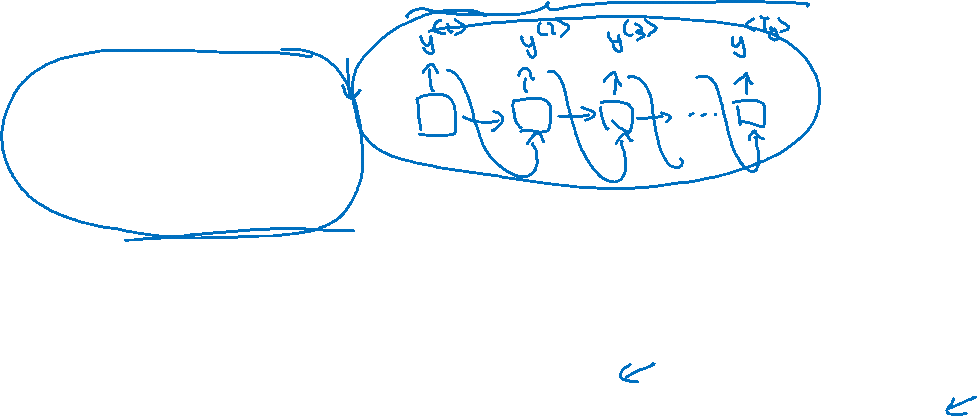 y<1> y<2> y<3> y<Ty>
...